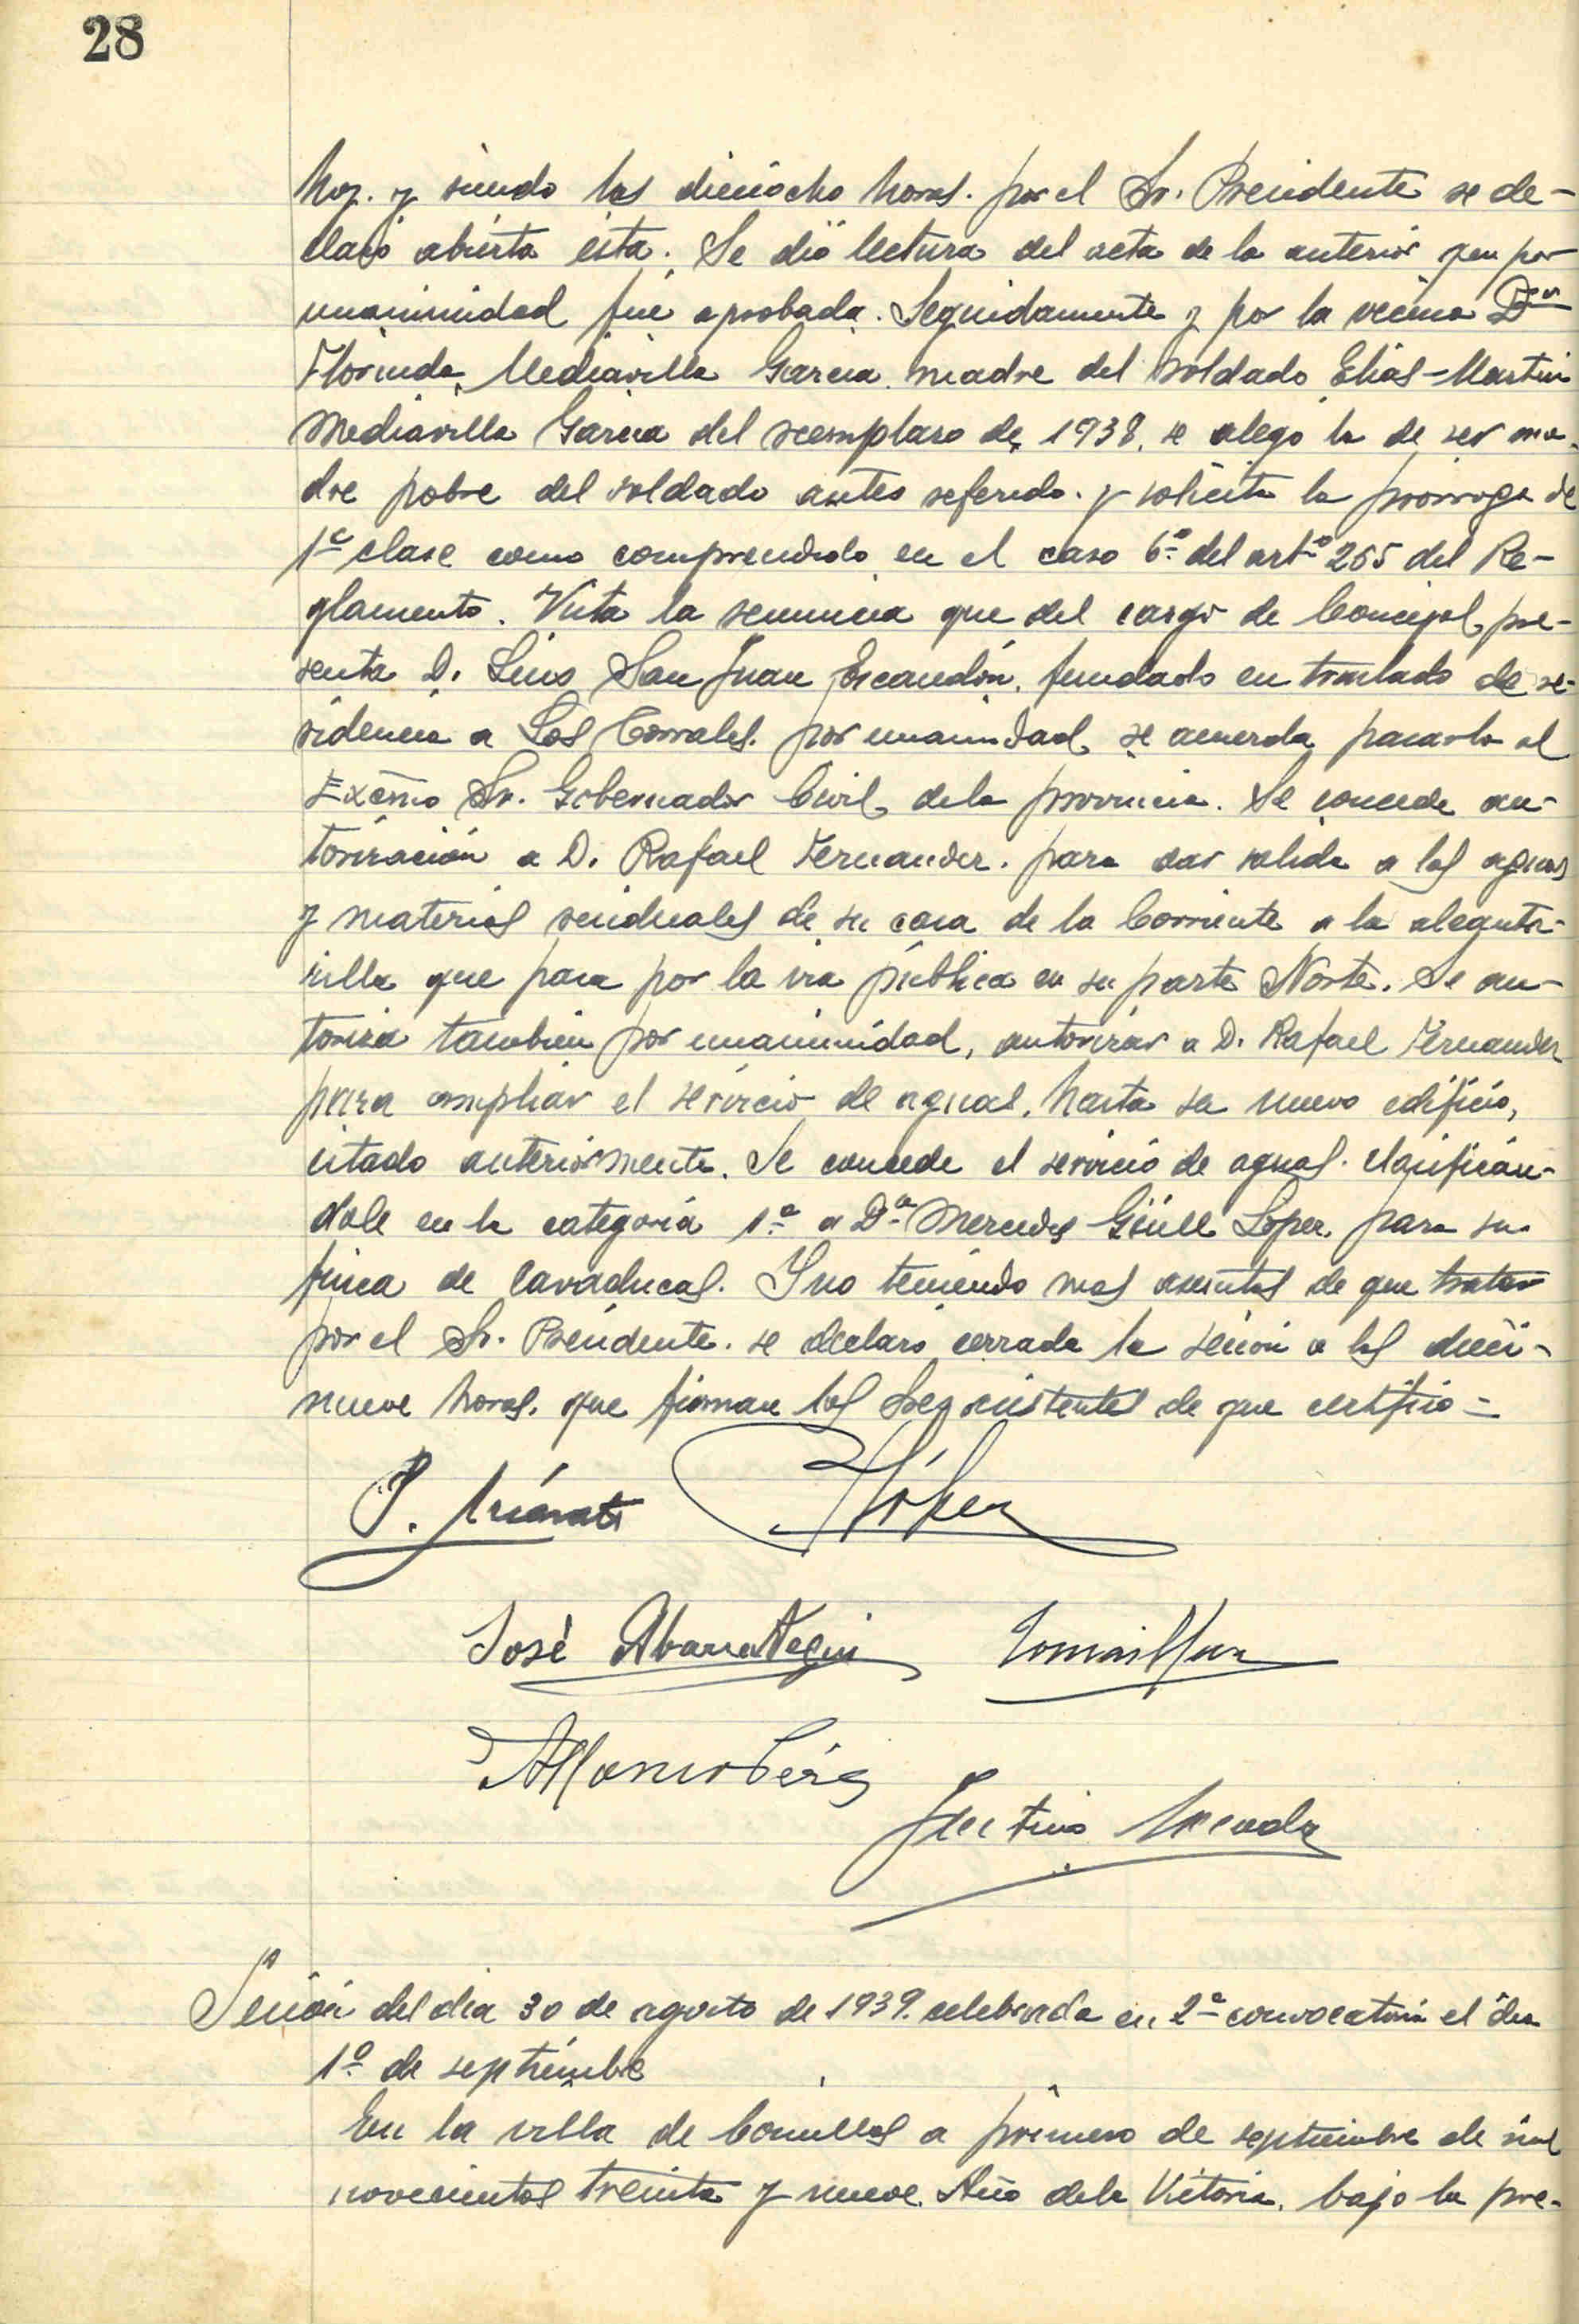 28
hoy. y siendo las dieciocho horas. por el Sr. Presidente se de-
claró abierta esta. Se dió lectura del acta de la anterior que por
unanimidad fué aprobada. Seguidamente y por la vecina Dña
Florinda Mediavilla Garcia. madre del soldado Elias-Martin
Mediavilla Garcia del reemplazo de 1938, se alegó la de ser ma-
dre pobre del soldado antes referido. y solicita la prórroga de
1ª clase como comprendido en el caso 6º del artº 265 del Re-
glamento. Vista la renuncia que del cargo de Concejal, pre-
senta D. Luis San Juan Escandón, fundado en traslado de re-
sidencia a Los Corrales. por unanimidad se acuerda pasarlo al
Excmo Sr. Gobernador Civil de la provincia. Se concede au-
torización a D. Rafael Fernandez. para dar salida a las aguas
y materias residuales de su casa de la Corriente a la alcanta-
rilla que pasa por la via pública en su parte Norte. Se au-
toriza también por unanimidad, autorizar a D. Rafael Fernandez
para ampliar el servicio de aguas, hasta su nuevo edificio,
citado anteriormente. Se concede el servicio de aguas. clasificán-
dole en la categoria 1ª a Dª Mercedes Güell Lopez, para su
finca de Cavaducas. Y no teniendo mas asuntos de que tratar
por el Sr. Presidente. se declaró cerrada la sesión a las dieci-
nueve horas, que firman los Sres asistentes de que certifico =
P.
López
José Abarrategui
Sesión del dia 30 de agosto de 1939. celebrada en 2ª convocatoria el dia
1º de septiembre
En la villa de Comillas a primero de septiembre de mil
novecientos treinta y nueve. Año de la Victoria, bajo la pre-